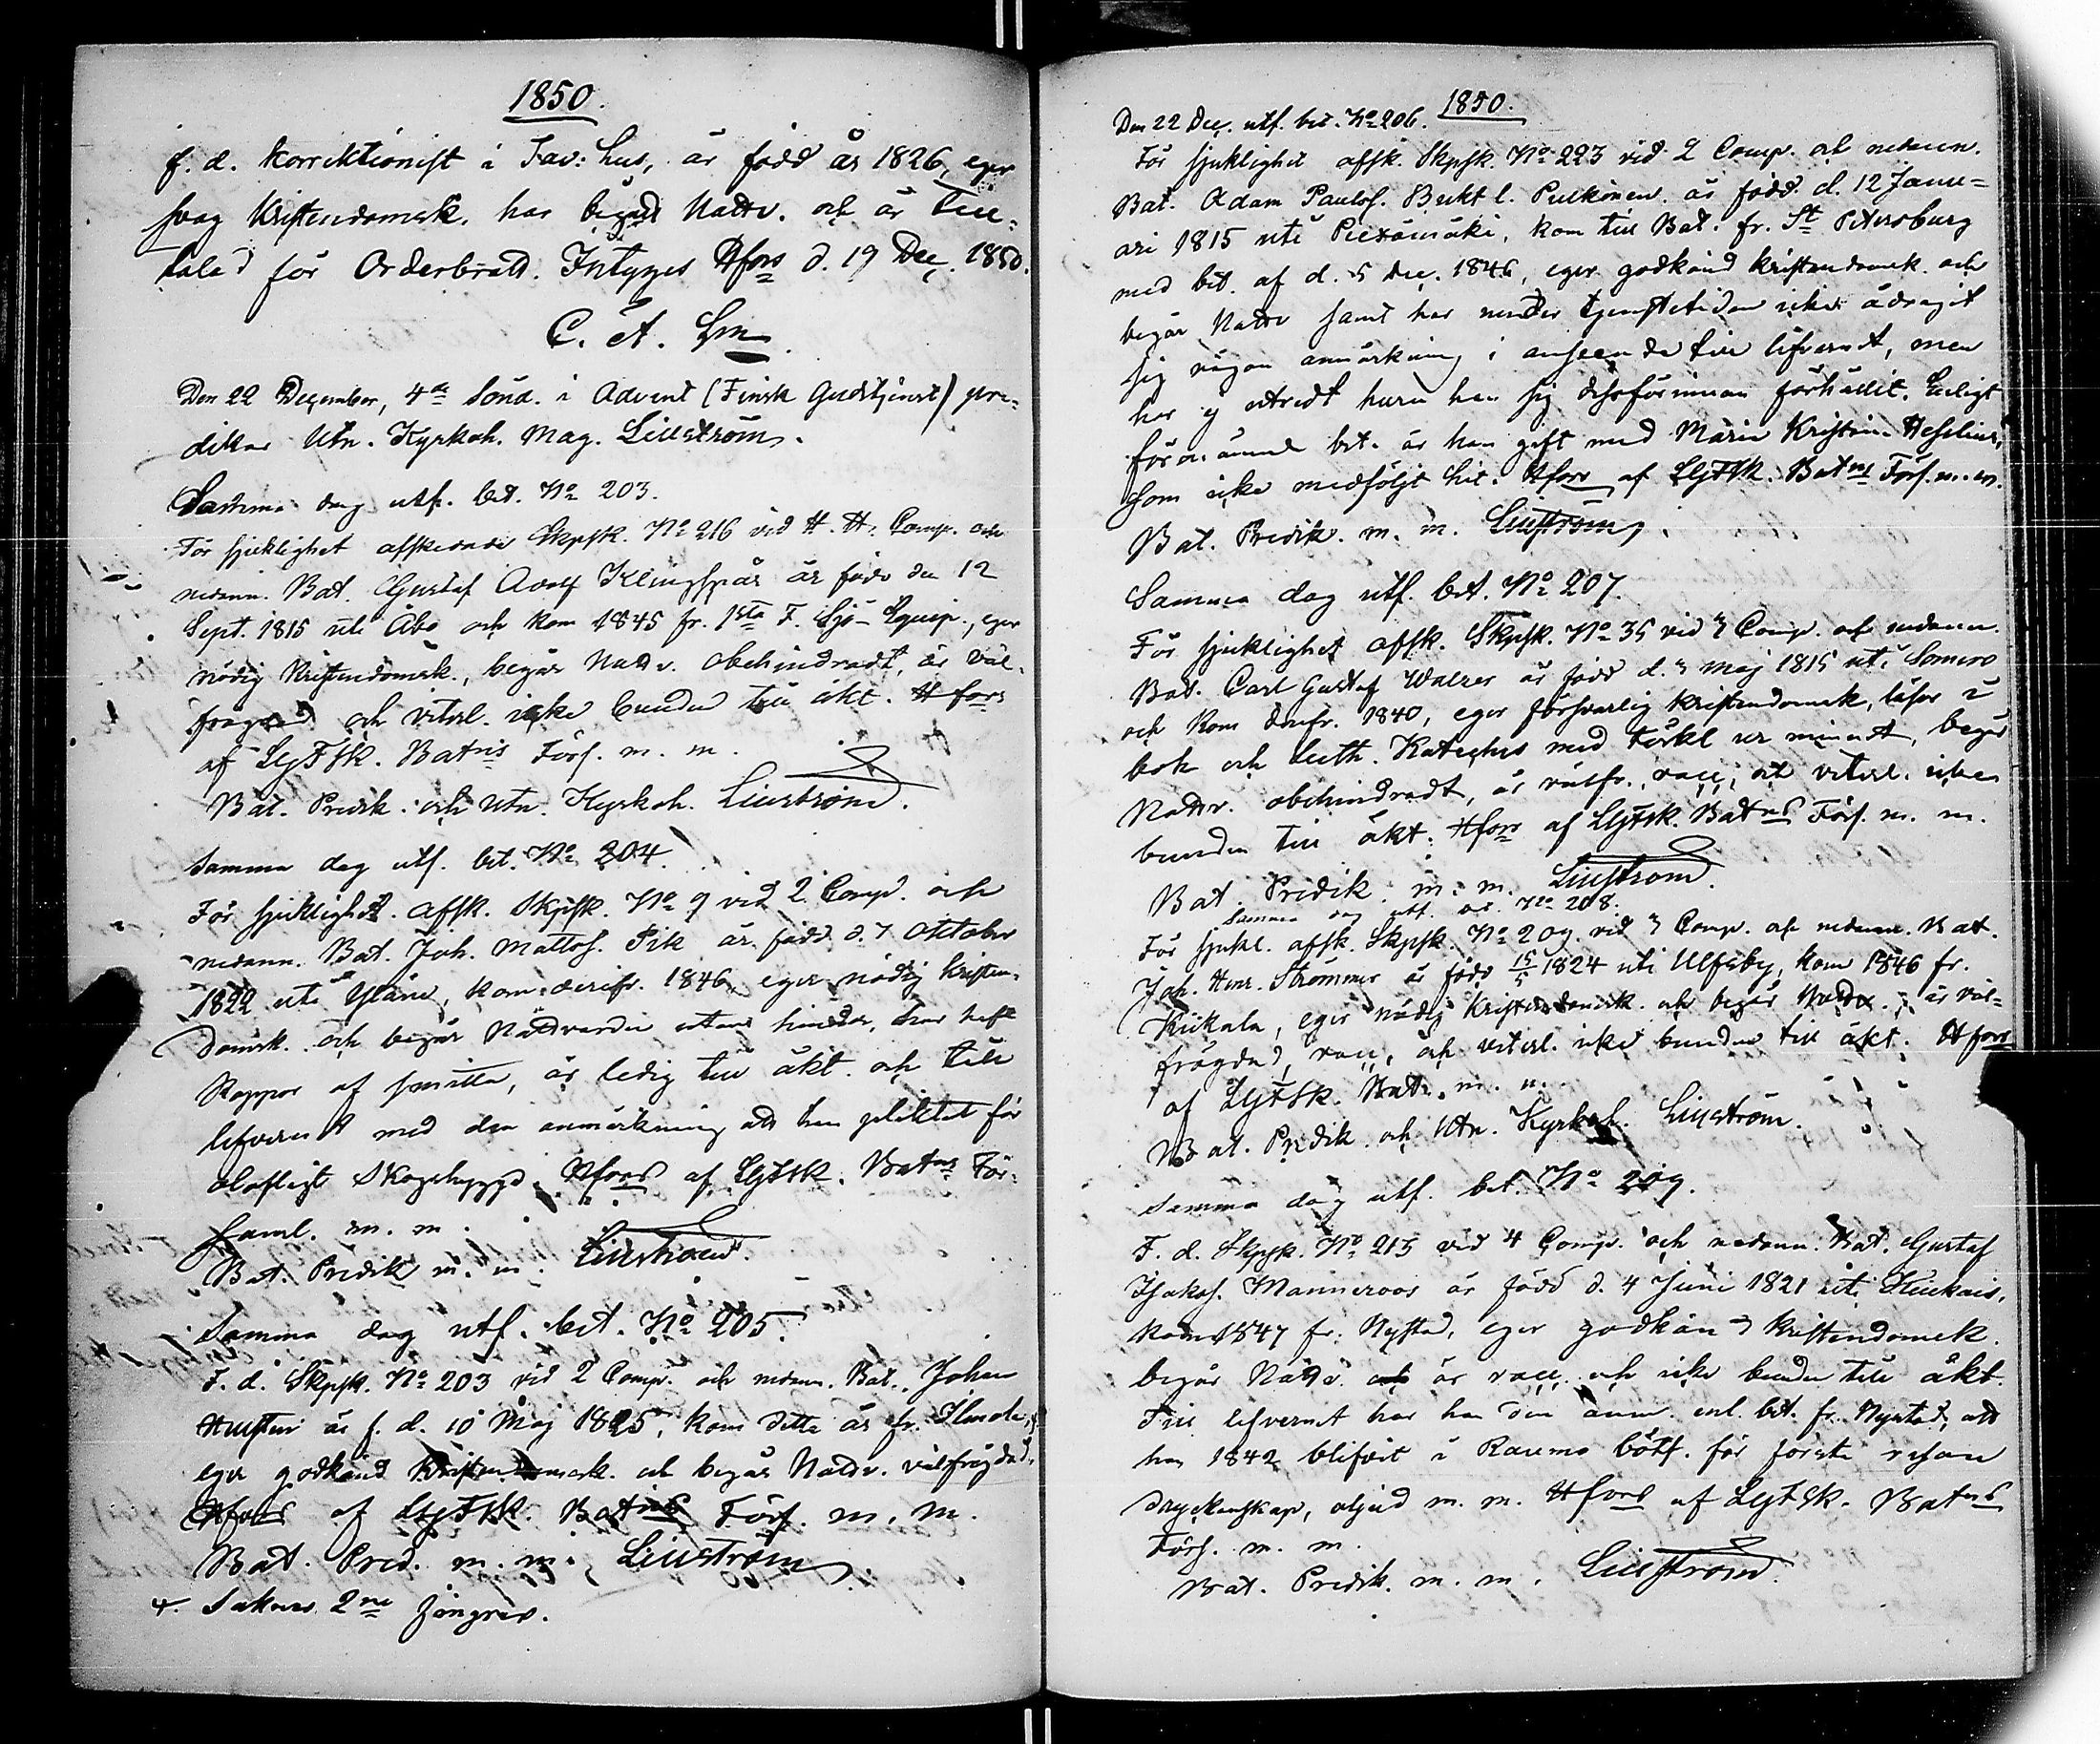 1850.
f. d. Korrektionist i Tav: hus, är född år 1826, eger
svag Kristendomsk. har begått Nattv. och är till-
talad för Orderbrott. Intygges Hfors d. 19 Dec. 1850.
C. A. Lm
Den 22 December, 4de Sönd. i Advent (Finsk Gudstjenst) pre-
dikar Utn. Kyrkoh. Mag. Lillström.
Samma dag utf. bet. No 203.
För sjuklighet afskedade Skpsk. No 216 vid H. H. Comp. och
nedann. Bat. Gustaf Adolf Klingspår är född den 12
Sept. 1815 uti Åbo och kom 1845 fr. 1sta F. Sjö-Equip., eger
nödig Kristendomsk., begår Nattv. obehindradt, är väl-
frägdad och veterl. icke bunden till äkt. Hfors
af LgFSk. Batns Förs. m. m.
Bat. Predik. och Utn. Kyrkoh. Lillström.
Samma dag utf. bet. No 204.
För sjuklighet afsk. Skpsk. No 9 vid 2 Comp. och
nedann. Bat. Joh. Mattos. Pik är född d. 7 Oktober
1822 uti Yläne, kom derifr. 1846, eger nödig Kristen-
domsk. och begår Nattvarden utan hinder, har haft
Koppor af smitta, är ledig till äkt. och till
lefvernet med den anmärkning att han pliktat för
olofligt Skogehygge. Hfors af LgFSk. Batns För-
saml. m. m.
Bat. Predik m. m. Lillström.
Samma dag utf. bet. No 205.
F. d. Skpsk. No 203 vid 2 Comp. och nedann. Bat. Johan
är f. d. 10 Maj 1825, kom detta år fr. Ilmola,
eger godkänd Kristendomsk. och begår Nattv. välfrägdad.
Hfors af LgFSk. Batns Förs. m. m.
Bat. Pred. m. m. Lillström
Saknar 2ne fingrar.
1850.
Den 22 Dec. utf. bet. No 206.
För sjuklighet afsk. Skpsk. No 223 vid 2 Comp. och nedann.
Bat. Adam Paulos. Bukt l. Pulkinen är född d. 12 Janu-
ari 1815 uti Pieksämäki, kom till Bat. fr. St Petersburg
med bet. af d. 5 Dec. 1846, eger godkänd Kristendomsk. och
begår Nattv samt har under tjenstetiden icke ådragit
sig någon anmärkning i anseende till lefvernet, men
har ej utredt huru han sig dessförinnan förhållit. Enligt
förenämnd bet. är han gift med Maria Kristina Hesselius,
som icke medföljt hit. Hfors af LgFSk. Batns Förs. m. m.
Bat. Predik. m. m. Lillström.
Samma dag utf. bet. No 207.
För sjuklighet afsk. Skpsk. No 35 vid 3 Comp. och nedann.
Bat. Carl Gustaf Walzer är född d. 3 Maj 1815 uti Somero
och kom derifr. 1840, eger försvarlig Kristendomsk, läser i
bok och Luth. Kateches med förkl ur minnet, begår
Nattv. obehindradt, är välfr., vacc. och veterl. icke
bunden till äkt. Hfors af LgFSk. Batns Förs. m. m.
Bat. Predik. m. m. Lillström.
Samma dag utf. bet. No 208.
För sjukl. afsk. Skpsk. No 209 vid 3 Comp. och nedann. Bat.
Joh. Henr. Strömmer är född 15/5 1824 uti Ulfsby, kom 1846 fr.
Kiikala, eger nödig Kristendomsk. och begår Nattv., är väl-
frägdad, vacc. och veterl. icke bunden till äkt. Hfors
af LgFSk. Bat. m. m.
Bat. Predik. och Utn. Kyrkoh. Lillström.
Samma dag utf. bet. No 209.
F. d. Skpsk. No 215 vid 4 Comp. och nedann. Bat. Gustaf
Isakss. Manneroos är född d. 4 Juni 1821 uti Kiukais,
kom 1847 fr. Nystad, eger godkänd Kristendomsk.
begår Nattv. och är vacc. och icke bunden till äkt.
Till lefvernet har han den anm. enl. bet. fr. Nystad, att
han 1842 blifvit i Raumo bötf. för första resan
dryckenskap, oljud m. m. Hfors af LgFSk. Batns
Förs. m. m.
Bat. Predik. m. m. Lillström.